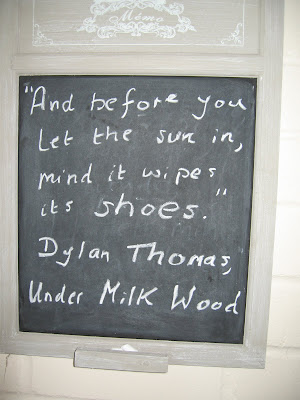 Mémo
"And before you
Let the sun in,
mind it wipes
its shoes."
Dylan Thomas,
Under Milk Wood